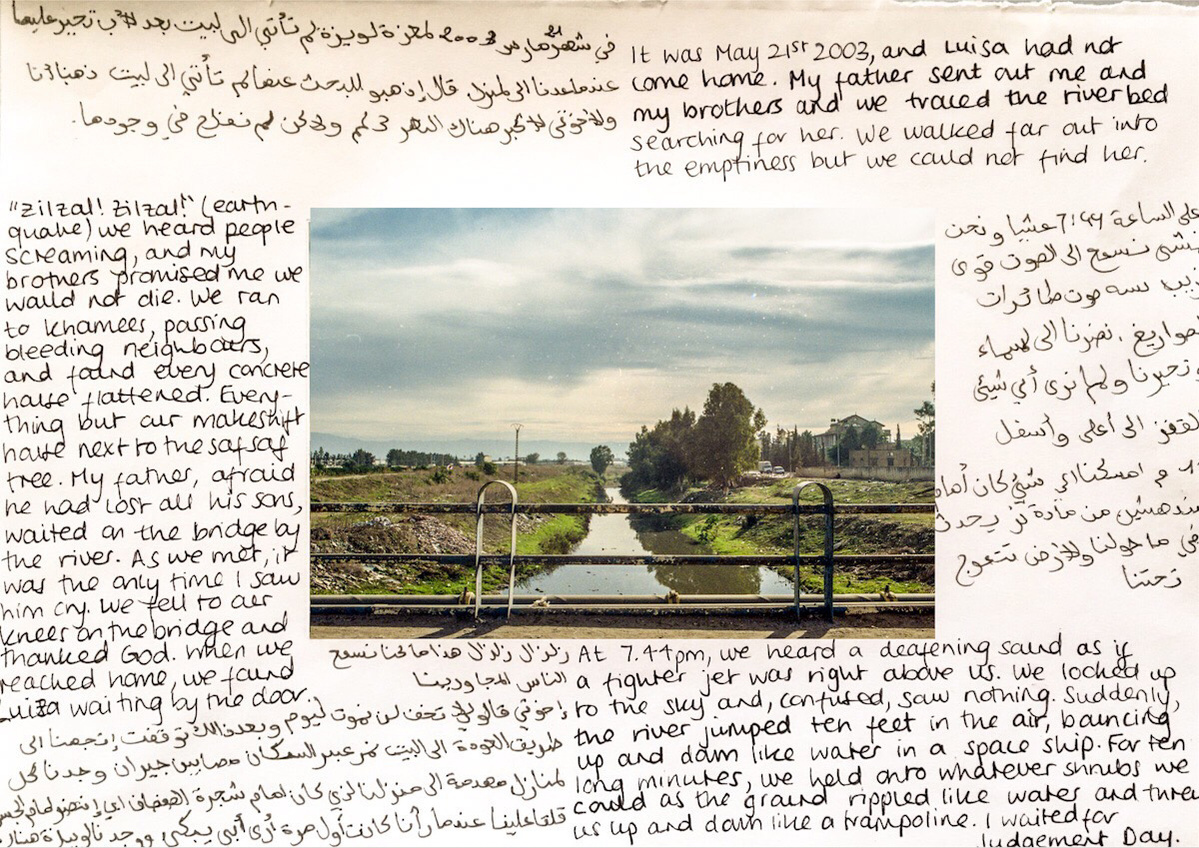 في شهر 21 مارس 2003 لمعزة لويزة لم تأتي الى لبيت بعد لأب تحير عليها
عندما عدنا الى لمنزل قال إذهبو للبحث عنها لم تأتي الى لبيت ذهبنا أنا
ولاخوتي لأكبر هناك النهر ولاكن لم نفلح في وجودها.
It was May 21st 2003, and Luisa had not
come home. My father sent out me and
my brothers and we traced the riverbed
searching for her. We walked far out into
the emptiness but we could not find her.
على الساعة 7:44 عشيا ونحن
نمشي نسمع الى الصوت قوي
صوت طائرات
صواريغ. نضرنا الى لسماء
وتحيرنا ولم نرى أي شيئ
لقفز الى أعلى وأسفل
امسكنا اي شيئ كان أمام
مندهشين من مادة
ما حولنا ولأرض تتموج
تحتنا
At 7.44pm, we heard a deafening sound as if
a fighter jet was right above us. We looked up
to the sky and, confused, saw nothing. Suddenly,
the river jumped ten feet in the air, bouncing
up and down like water in a space ship. For ten
long minutes, we held onto whatever shrubs we
could as the ground rippled like water and threw
us up and down like a trampoline. I waited for
Judgement Day.
زلزال زلزال هذا ما كنا نسمع
الناس المجاورينا
إخوتي قالو لي تخف لن نموت ليوم وبعد ذالك توقفت إتجهنا الى
طريق العودة الى البيت نمر عبر السكان مصابين جيران وجدنا كل
لمنازل مهدمة الى منزلنا لذي كان امام شجرة الصفصاف
قلقا علينا عندما رأنا كانت أول مرة أرى أبي يبكي ووجدنا لويزة هناك
"Zilzal! Zilzal!" (earth-
quake) we heard people
screaming, and my
brothers promised me we
would not die. We ran
to Khamees, passing
bleeding neighbours,
and found every concrete
house flattened. Every-
thing but our makeshift
house next to the safsaf
tree. My father, afraid
he had lost all his sons,
waited on the bridge by
the river. As we met, it
was the only time I saw
him cry. We fell to our
knees on the bridge and
thanked God. When we
reached home, we found
Luiza waiting by the door.